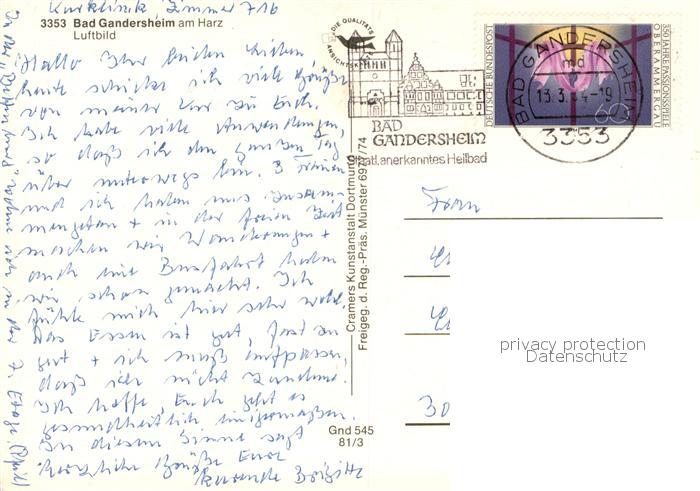 Kurklinik, Zimmer 716
3353 Bad Gandersheim am Harz
Luftbild
Hallo Ihr beiden Lieben,
heute schicke ich viele Grüße
von meiner Kur zu Euch.
Ich habe viele Anwendungen,
so daß ich den ganzen Tag
über unterwegs bin. 3 Frauen
und ich haben uns zusam-
mengetan + in der freien Zeit
machen wir Wanderungen +
auch eine Busfahrt haben
wir schon gemacht. Ich
fühle mich hier sehr wohl.
Das Essen ist gut, fast zu
gut + ich muß aufpassen,
daß ich nicht zunehme.
Ich hoffe, Euch geht es
gesundheitlich einigermaßen.
In diesem Sinne sagt
herzliche Grüße Eure
Brigitte
wohne ich in der 7. Etage.
DIE QUALITÄTS
ANSICHTSKARTE
BAD
GANDERSHEIM
Staatl. anerkanntes Heilbad
BAD GANDERSHEIM
md
13.3.84-19
3353
DEUTSCHE BUNDESPOST
60
350 JAHRE PASSIONSSPIELE
OBERAMMERGAU
Cramers Kunstanstalt Dortmund
Freigeg. d. Reg.-Präs. Münster 6977/74
Gnd 545
81/3
Fam
30
privacy protection
Datenschutz